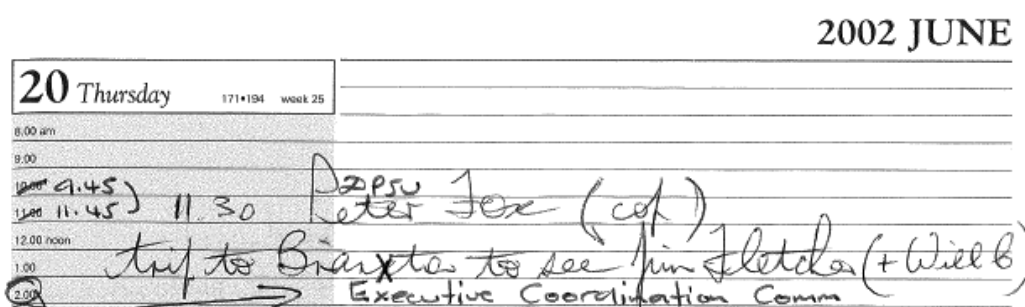 2002 JUNE
20 Thursday 171•194 week 25
8.00 am
9.00
10.00 9.45) DPSU
11.00 11.45) 11.30 Peter Fox (cof)
12.00 noon
trip to to see Jim Fletcher (+ Will B)
1.00
2.00 Executive Coordination Comm